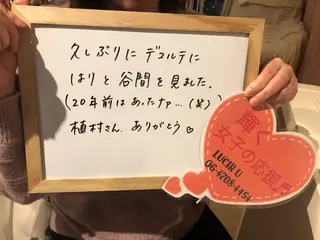 久しぶりに デコルテに
はりと谷間を見ました。
(20年前はあったナァ…(笑))
植村さん、ありがとう♡
輝く
女子の応援
LUCIR U
06-4708-4454